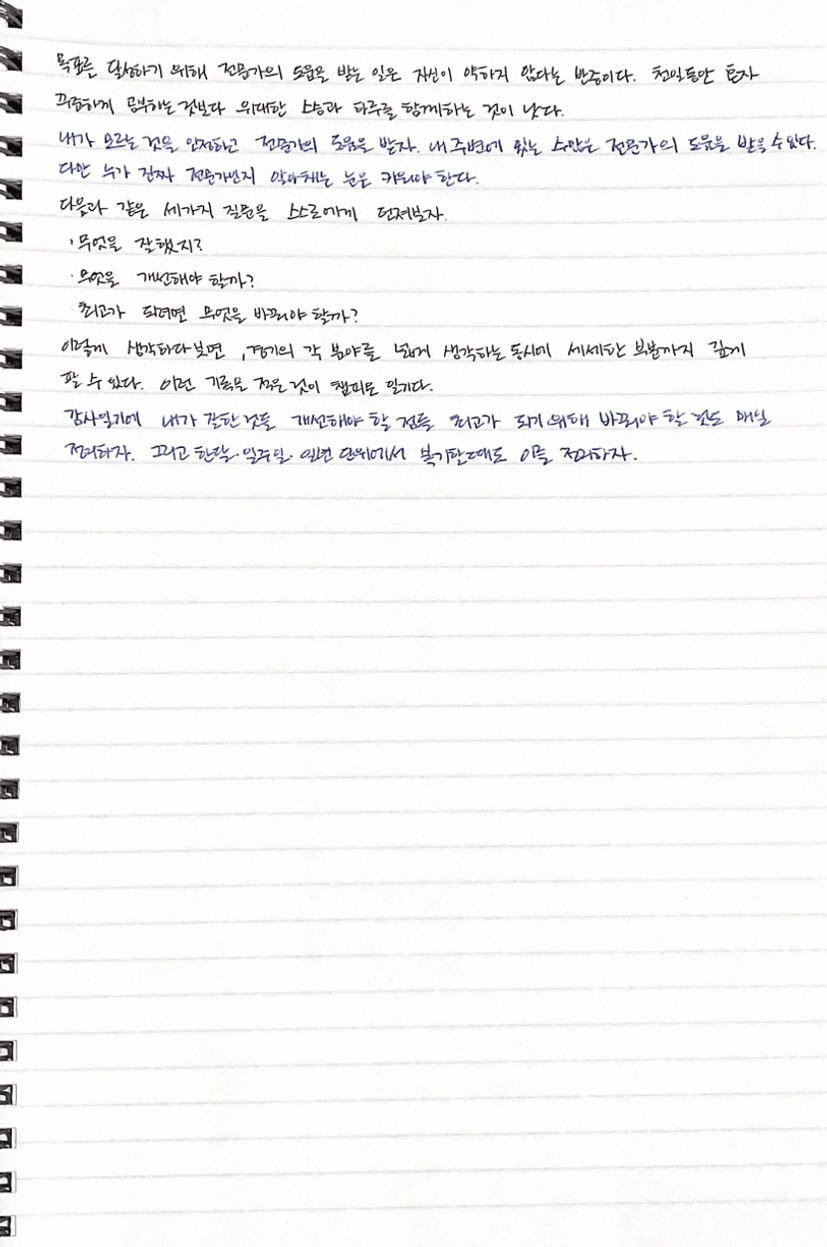 목표를 달성하기 위해 전문가의 도움을 받는 일은 자신이 약하지 않다는 반증이다. 천일동안 혼자
꾸준하게 공부하는것보다 위대한 스승과 하루를 함께하는 것이 낫다.
내가 모르는 것을 인정하고 전문가의 도움을 받자. 내 주변에 있는 수많은 전문가의 도움을 받을 수 있다.
다만 누가 진짜 전문가인지 알아채는 눈은 키워야 한다.
다음과 같은 세가지 질문을 스스로에게 던져보자.
· 무엇을 잘했지?
· 무엇을 개선해야 할까?
· 최고가 되려면 무엇을 바꿔야 할까?
이렇게 생각하다보면, 경기의 각 분야를 넓게 생각하는 동시에 세세한 부분까지 깊게
팔 수 있다. 이런 기록을 적은 것이 챔피언 일기다.
감사일기에 내가 잘한 것들 개선해야 할 점들 최고가 되기 위해 바꿔야 할 것도 매일
정리하자. 그리고 한달·일주일·일년 단위에서 복기할때도 이를 정리하자.